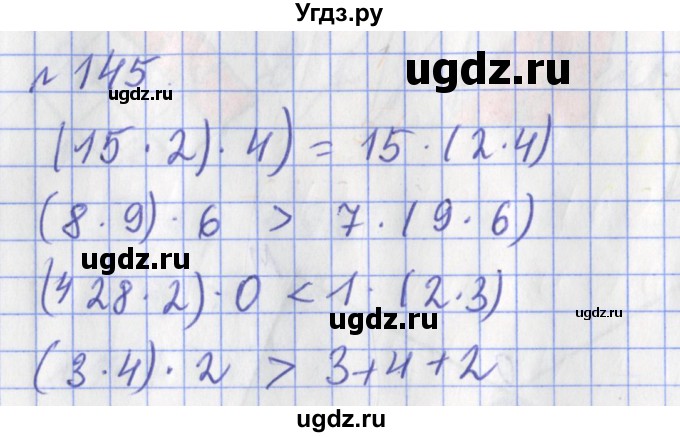 Угдз.ру
№ 145
ugdz.ru
ugdz.ru
(15 · 2) · 4) = 15 · (2 · 4)
(8 · 9) · 6 > 7 · (9 · 6)
ugdz.ru
(428 · 2) · 0 < 1 · (2 · 3)
ugdz.ru
ugdz.ru
(3 · 4) · 2 > 3 + 4 + 2
ugdz.ru